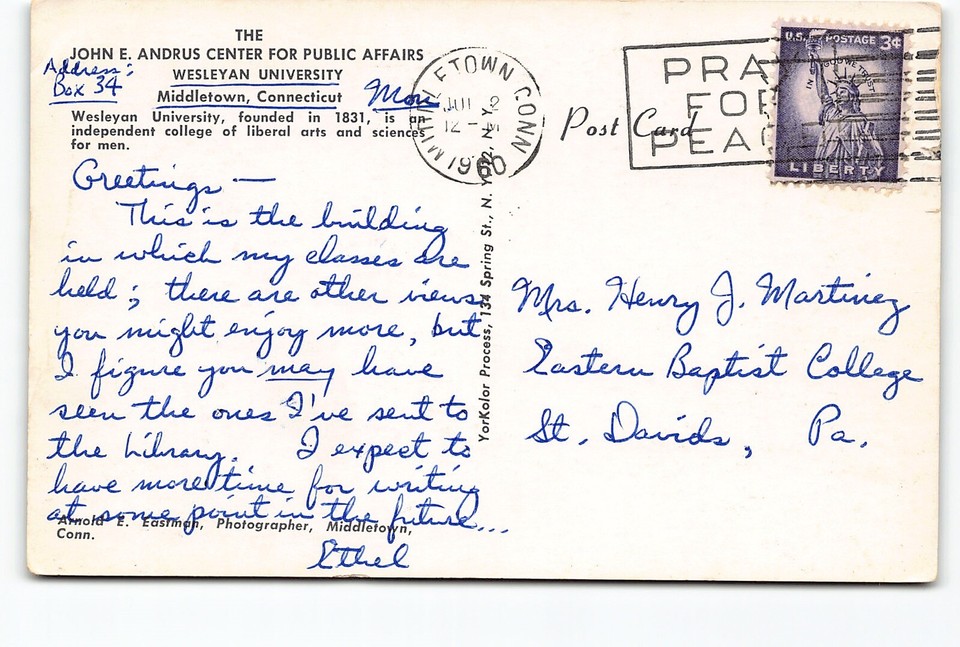 THE
JOHN E. ANDRUS CENTER FOR PUBLIC AFFAIRS
Address:
Box 34
WESLEYAN UNIVERSITY
Middletown, Connecticut
Mon
Wesleyan University, founded in 1831, is an
independent college of liberal arts and sciences
for men.
Greetings —
This is the building
in which my classes are
held; there are other views
you might enjoy more, but
I figure you may have
seen the ones I've sent to
the Library. I expect to
have more time for writing
at some point in the future...
Ethel
Arnold E. Eastman, Photographer, Middletown,
Conn.
YorKolor Process, 134 Spring St., N. Y. 12, N. Y.
CONN
1960
Post Card
PRA
FOR
PEAC
U.S. POSTAGE 3¢
IN GOD WE TRUST
LIBERTY
Mrs. Henry J. Martinez
Eastern Baptist College
St. Davids, Pa.